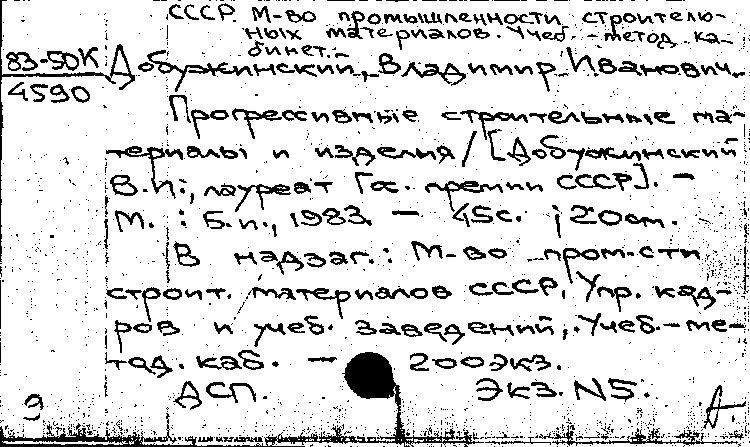 СССР. М-во промышленности строитель-
ных материалов. Учеб.-метод. ка-
бинет.-
83-50К
4590
Добужинский, Владимир Иванович.
Прогрессивные строительные ма-
териалы и изделия / [Добужинский
В.И., лауреат Гос. премии СССР]. -
М. : Б.и., 1983. - 45с. ; 20см.
В надзаг.: М-во пром-сти
строит. материалов СССР, Упр. кад-
ров и учеб. заведений, Учеб.-ме-
тод. каб. - 200экз.
ДСП. Экз. N5.
9